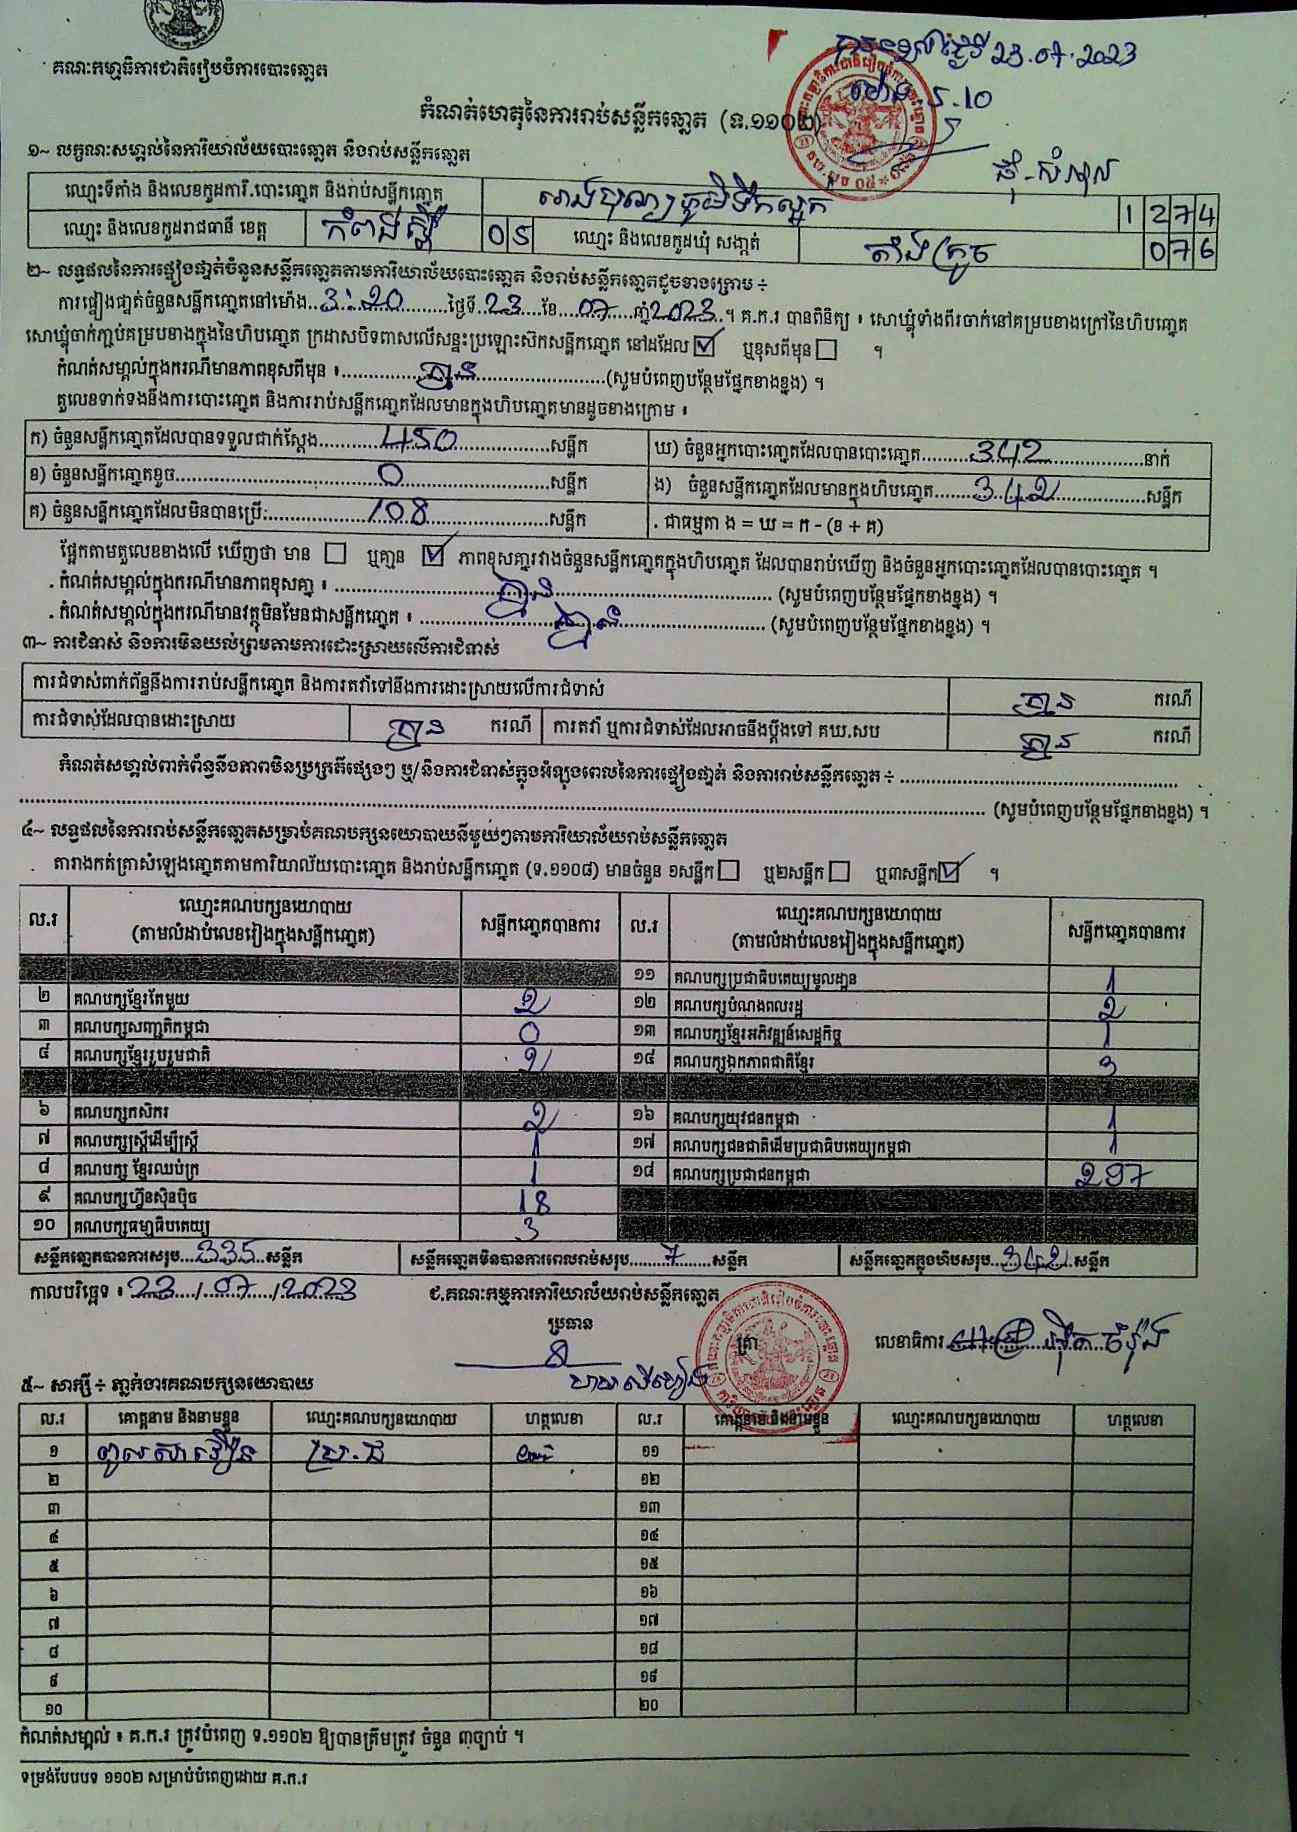 គណៈកម្មាធិការជាតិរៀបចំការបោះឆ្នោត
ថ្ងៃទី 23.07.2023
ម៉ោង 5.10
កំណត់ហេតុនៃការរាប់សន្លឹកឆ្នោត (ទ.១១០២)
១~ លក្ខណៈសម្គាល់នៃការិយាល័យបោះឆ្នោត និងរាប់សន្លឹកឆ្នោត
ឈ្មោះទីតាំង និងលេខកូដការិ.បោះឆ្នោត និងរាប់សន្លឹកឆ្នោត 1274
ឈ្មោះ និងលេខកូដរាជធានី ខេត្ត កំពង់ស្ពឺ 05 ឈ្មោះ និងលេខកូដឃុំ សង្កាត់ តាំងក្រូច 076
២~ លទ្ធផលនៃការផ្ទៀងផ្ទាត់ចំនួនសន្លឹកឆ្នោតតាមការិយាល័យបោះឆ្នោត និងរាប់សន្លឹកឆ្នោតដូចខាងក្រោម ÷
ការផ្ទៀងផ្ទាត់ចំនួនសន្លឹកឆ្នោតនៅម៉ោង 3:20 ថ្ងៃទី 23 ខែ 07 ឆ្នាំ 2023 ។ គ.ក.រ បានពិនិត្យ ៖ សោឃ្លុំទាំងពីរចាក់នៅគម្របខាងក្រៅនៃហិបឆ្នោត
សោឃ្លុំចាក់ភ្ជាប់គម្របខាងក្នុងនៃហិបឆ្នោត ក្រដាសបិទពាសលើសន្ទះប្រឡោះស៊កសន្លឹកឆ្នោត នៅដដែល ☑ ឬខុសពីមុន ☐ ។
កំណត់សម្គាល់ក្នុងករណីមានភាពខុសពីមុន ៖ គ្មាន (សូមបំពេញបន្ថែមផ្នែកខាងខ្នង) ។
តួលេខទាក់ទងនឹងការបោះឆ្នោត និងការរាប់សន្លឹកឆ្នោតដែលមានក្នុងហិបឆ្នោតមានដូចខាងក្រោម ៖
ក) ចំនួនសន្លឹកឆ្នោតដែលបានទទួលជាក់ស្តែង 450 សន្លឹក ឃ) ចំនួនអ្នកបោះឆ្នោតដែលបានបោះឆ្នោត 342 នាក់
ខ) ចំនួនសន្លឹកឆ្នោតខូច 0 សន្លឹក ង) ចំនួនសន្លឹកឆ្នោតដែលមានក្នុងហិបឆ្នោត 342 សន្លឹក
គ) ចំនួនសន្លឹកឆ្នោតដែលមិនបានប្រើ: 108 សន្លឹក . ជាធម្មតា ង = ឃ = ក - (ខ + គ)
ផ្អែកតាមតួលេខខាងលើ ឃើញថា មាន ☐ ឬគ្មាន ☑ ភាពខុសគ្នារវាងចំនួនសន្លឹកឆ្នោតក្នុងហិបឆ្នោត ដែលបានរាប់ឃើញ និងចំនួនអ្នកបោះឆ្នោតដែលបានបោះឆ្នោត ។
. កំណត់សម្គាល់ក្នុងករណីមានភាពខុសគ្នា ៖ គ្មាន (សូមបំពេញបន្ថែមផ្នែកខាងខ្នង) ។
. កំណត់សម្គាល់ក្នុងករណីមានវត្ថុមិនមែនជាសន្លឹកឆ្នោត ៖ គ្មាន (សូមបំពេញបន្ថែមផ្នែកខាងខ្នង) ។
៣~ ការជំទាស់ និងការមិនយល់ព្រមតាមការដោះស្រាយលើការជំទាស់
ការជំទាស់ពាក់ព័ន្ធនឹងការរាប់សន្លឹកឆ្នោត និងការតវ៉ាទៅនឹងការដោះស្រាយលើការជំទាស់ គ្មាន ករណី
ការជំទាស់ដែលបានដោះស្រាយ គ្មាន ករណី ការតវ៉ា ឬការជំទាស់ដែលអាចនឹងប្តឹងទៅ គឃ.សប គ្មាន ករណី
កំណត់សម្គាល់ពាក់ព័ន្ធនឹងភាពមិនប្រក្រតីផ្សេងៗ ឬ/និងការជំទាស់ក្នុងអំឡុងពេលនៃការផ្ទៀងផ្ទាត់ និងការរាប់សន្លឹកឆ្នោត ÷
(សូមបំពេញបន្ថែមផ្នែកខាងខ្នង) ។
៤~ លទ្ធផលនៃការរាប់សន្លឹកឆ្នោតសម្រាប់គណបក្សនយោបាយនីមួយៗតាមការិយាល័យរាប់សន្លឹកឆ្នោត
តារាងកត់ត្រាសំឡេងឆ្នោតតាមការិយាល័យបោះឆ្នោត និងរាប់សន្លឹកឆ្នោត (ទ.១១០៨) មានចំនួន ១សន្លឹក ☐ ឬ២សន្លឹក ☐ ឬ៣សន្លឹក ☑ ។
ល.រ ឈ្មោះគណបក្សនយោបាយ (តាមលំដាប់លេខរៀងក្នុងសន្លឹកឆ្នោត) សន្លឹកឆ្នោតបានការ ល.រ ឈ្មោះគណបក្សនយោបាយ (តាមលំដាប់លេខរៀងក្នុងសន្លឹកឆ្នោត) សន្លឹកឆ្នោតបានការ
១១ គណបក្សប្រជាធិបតេយ្យមូលដ្ឋាន 1
២ គណបក្សខ្មែរតែមួយ 2 ១២ គណបក្សបំណងពលរដ្ឋ 2
៣ គណបក្សសញ្ជាតិកម្ពុជា 0 ១៣ គណបក្សខ្មែរអភិវឌ្ឍន៍សេដ្ឋកិច្ច 1
៤ គណបក្សខ្មែររួបរួមជាតិ 2 ១៤ គណបក្សឯកភាពជាតិខ្មែរ 3
៦ គណបក្សកសិករ 2 ១៦ គណបក្សយុវជនកម្ពុជា 1
៧ គណបក្សស្ត្រីដើម្បីស្ត្រី 1 ១៧ គណបក្សជនជាតិដើមប្រជាធិបតេយ្យកម្ពុជា 1
៨ គណបក្ស ខ្មែរឈប់ក្រ 1 ១៨ គណបក្សប្រជាជនកម្ពុជា 297
៩ គណបក្សហ្វ៊ុនស៊ិនប៉ិច 18
១០ គណបក្សធម្មាធិបតេយ្យ 3
សន្លឹកឆ្នោតបានការសរុប 335 សន្លឹក សន្លឹកឆ្នោតមិនបានការពេលរាប់សរុប 7 សន្លឹក សន្លឹកឆ្នោតក្នុងហិបសរុប 342 សន្លឹក
កាលបរិច្ឆេទ ៖ 23/07/2023 ជ.គណៈកម្មការការិយាល័យរាប់សន្លឹកឆ្នោត
ប្រធាន ត្រា លេខាធិការ
៥~ សាក្សី ÷ ភ្នាក់ងារគណបក្សនយោបាយ
ល.រ គោត្តនាម និងនាមខ្លួន ឈ្មោះគណបក្សនយោបាយ ហត្ថលេខា ល.រ គោត្តនាម និងនាមខ្លួន ឈ្មោះគណបក្សនយោបាយ ហត្ថលេខា
១ ប្រ.ជ ១១
២ ១២
៣ ១៣
៤ ១៤
៥ ១៥
៦ ១៦
៧ ១៧
៨ ១៨
៩ ១៩
១០ ២០
កំណត់សម្គាល់ ៖ គ.ក.រ ត្រូវបំពេញ ទ.១១០២ ឱ្យបានត្រឹមត្រូវ ចំនួន ៣ច្បាប់ ។
ទម្រង់បែបបទ ១១០២ សម្រាប់បំពេញដោយ គ.ក.រ